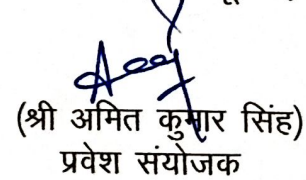 (श्री अमित कुमार सिंह)
प्रवेश संयोजक